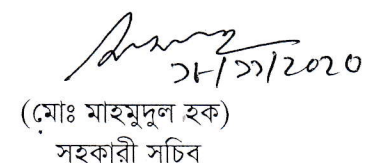 ১৮/১১/2020
(মোঃ মাহমুদুল হক)
সহকারী সচিব